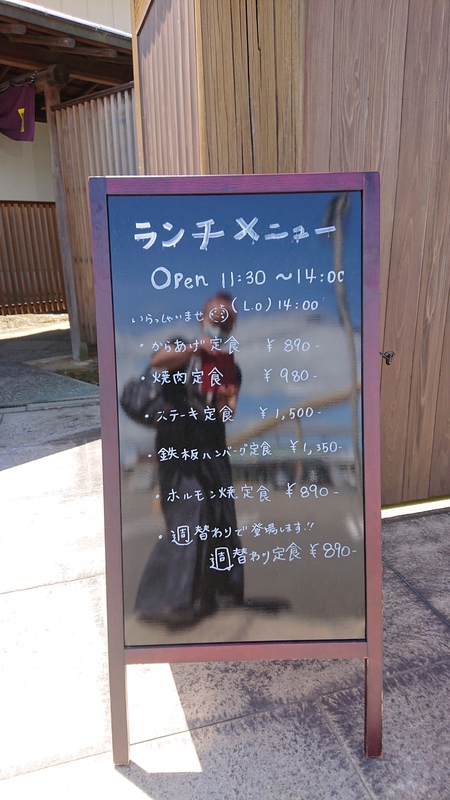 ランチメニュー
Open 11:30 ～14:00
いらっしゃいませ (L.O) 14:00
・からあげ定食 ¥ 890-
・焼肉定食 ¥ 980-
・ステーキ定食 ¥ 1,500-
・鉄板ハンバーグ定食 ¥1,350-
・ホルモン焼定食 ¥890-
・週替わりで登場します!!
週替わり定食 ¥890-